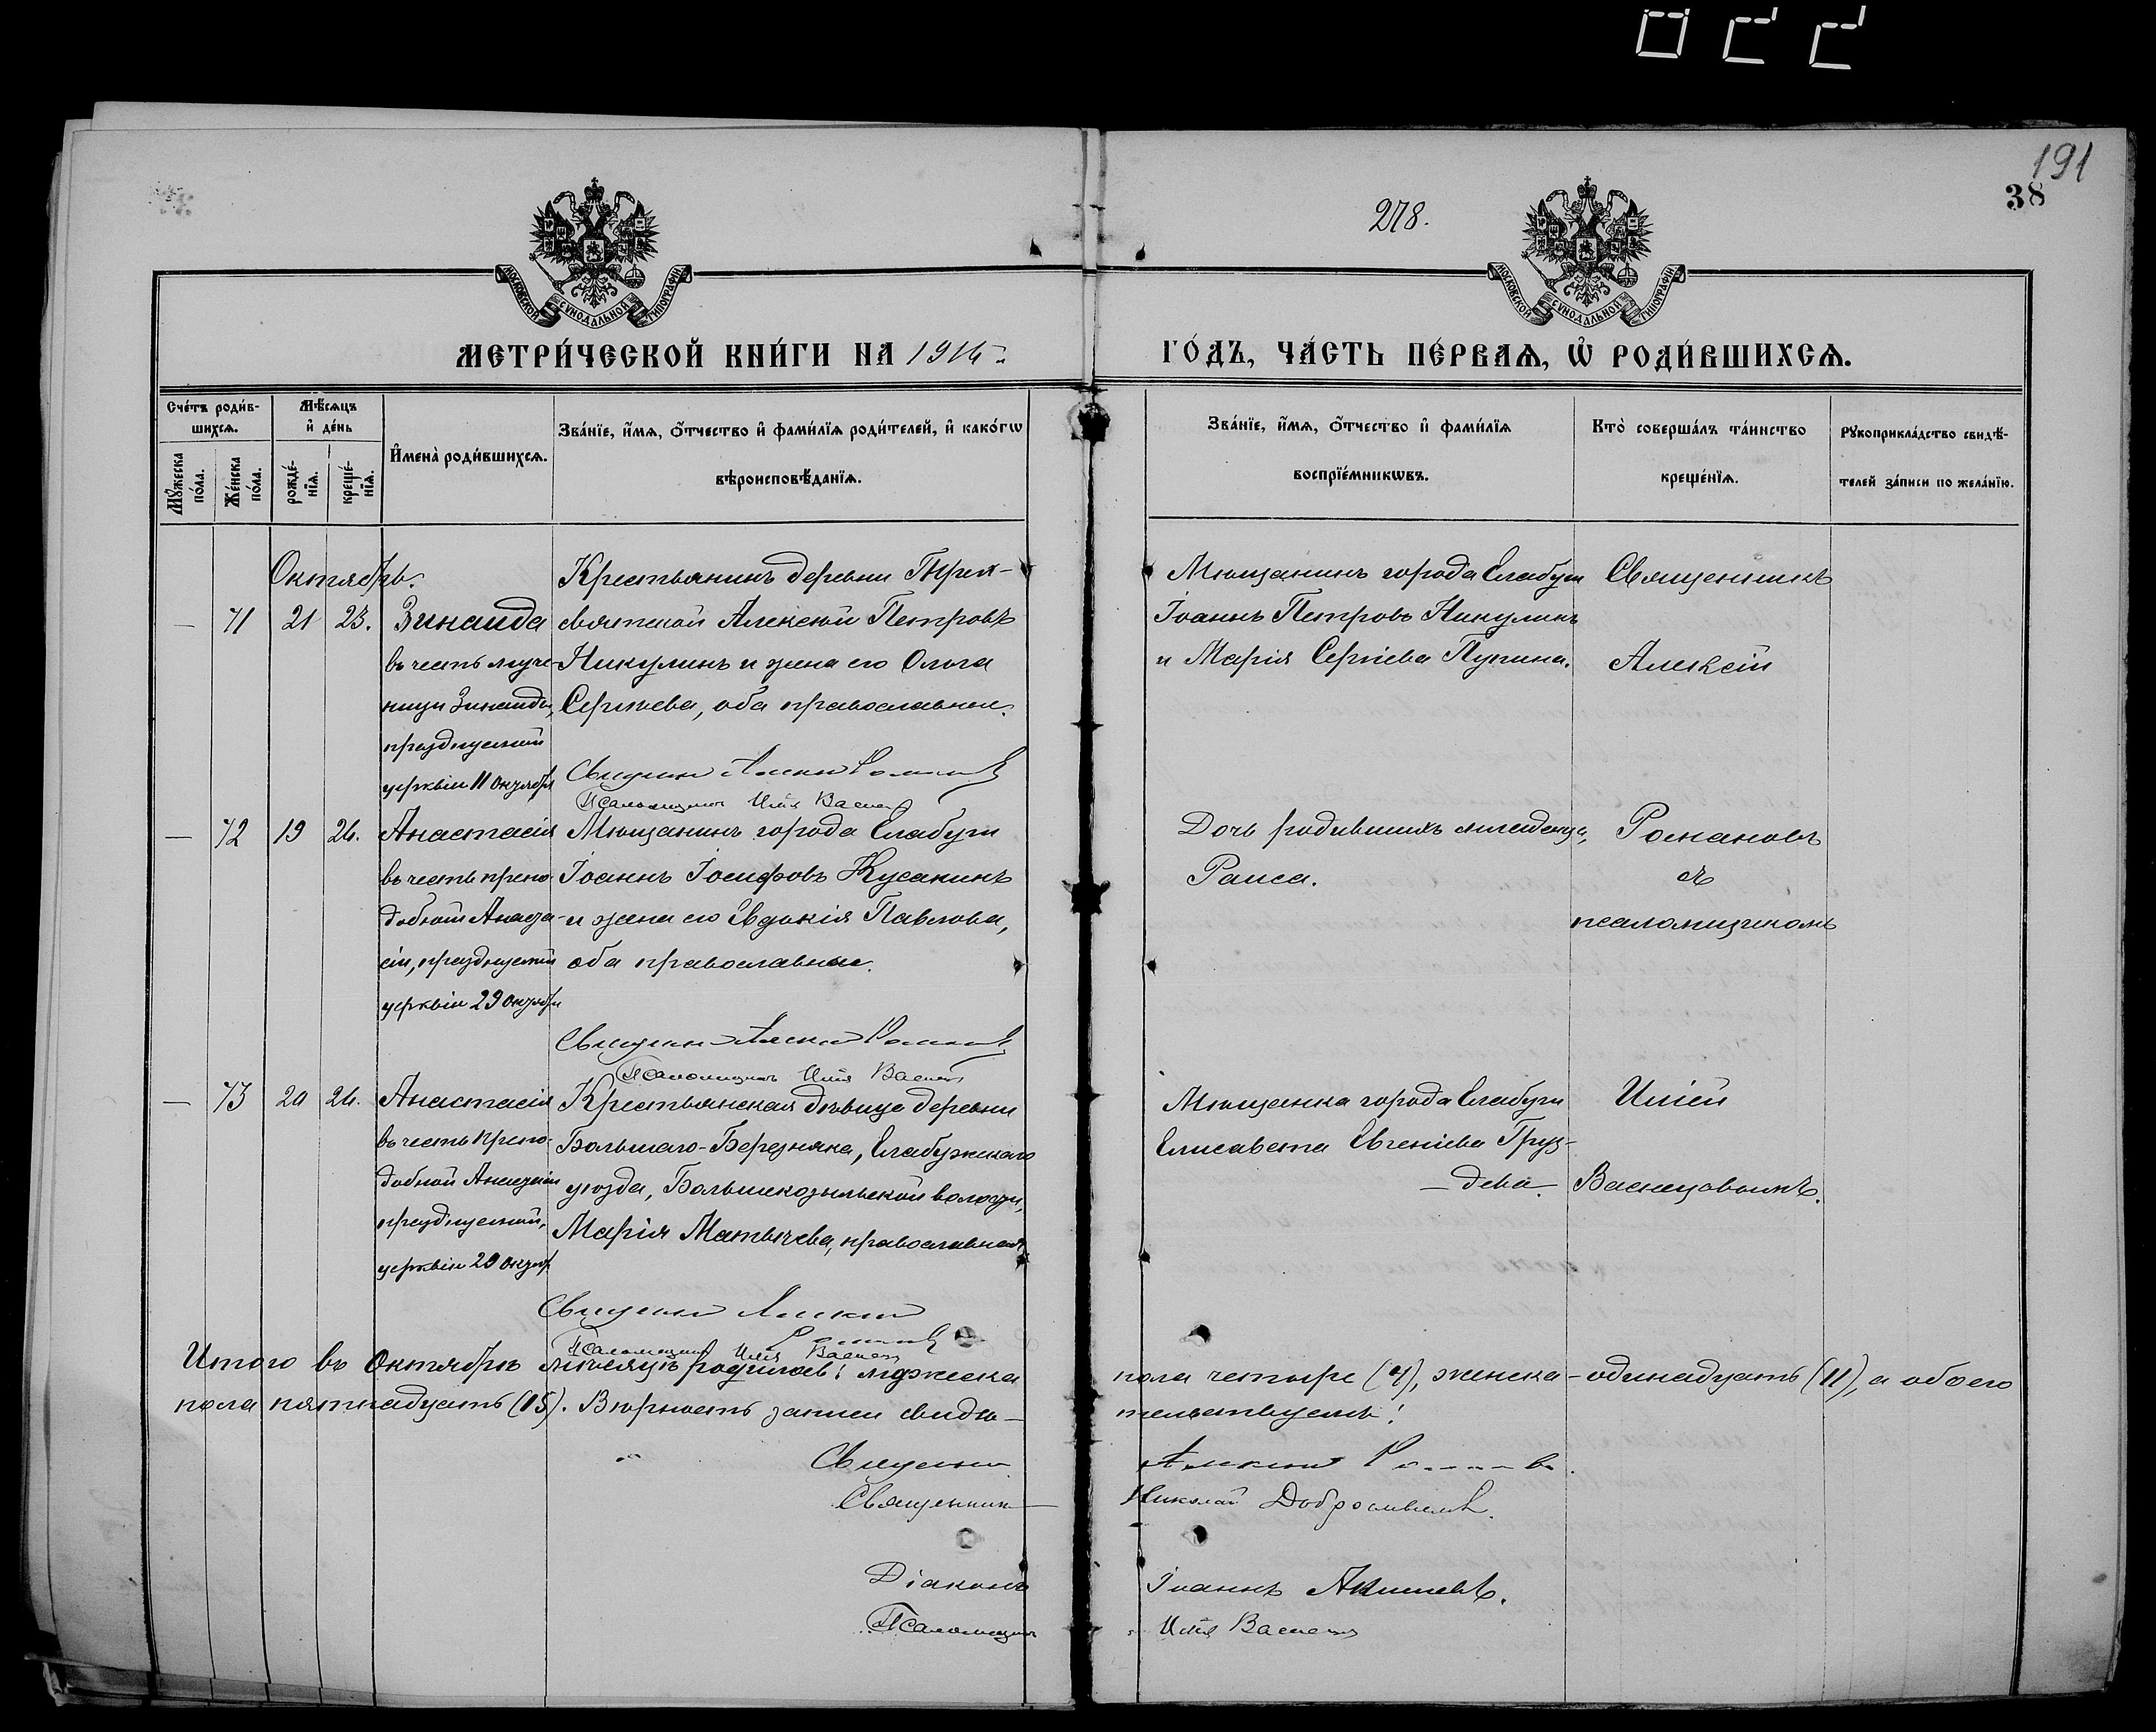 191
38
278.
МОСКОВСКОЙ СѴНОДАЛЬНОЙ ТИПОГРАФІИ
МОСКОВСКОЙ СѴНОДАЛЬНОЙ ТИПОГРАФІИ
МЕТРИ́ЧЕСКОЙ КНИ́ГИ НА
ГО́ДЪ, ЧА́СТЬ ПЕ́РВАѦ, Ѡ҆ РОДИ́ВШИХСѦ.
Сче́тъ роди́в-
шихсѧ.
Мꙋ́жеска по́ла.
Же́нска по́ла.
Мѣ́сѧцъ
и҆ де́нь
рожде́-
нїѧ.
креще́-
нїѧ.
И҆мена̀ роди́вшихсѧ.
Зва́нїе, и҆́мѧ, ѻ҆́тчество и҆ фами́лїѧ роди́телей, и҆ како́гѡ
вѣроисповѣ́данїѧ.
Зва́нїе, и҆́мѧ, ѻ҆́тчество и҆ фами́лїѧ
воспрїе́мникѡвъ.
Кто̀ соверша́лъ та́инство
креще́нїѧ.
Рꙋкоприкла́дство свидѣ́-
телей за́писи по жела́нїю.
Октябрь.
— 71 21 23. Зинаида
въ честь муче-
ницы Зинаиды,
празднуемой
церквію 11 октября
Крестьянинъ деревни Трех-
святской Алексѣй Петровъ
Никулинъ и жена его Ольга
Сергіева, оба православные.
Священ Алексій Романовъ
Псаломщикъ Илія Васнец
Мѣщанинъ города Елабуги
Іоаннъ Петровъ Никулинъ
и Марія Сергіева Пупина.
Священникъ
Алексій
— 72 19 24. Анастасія
въ честь препо-
добной Анаста-
сіи, празднуемой
церквію 29 октября
Мѣщанинъ города Елабуги
Іоаннъ Іосифовъ Кусакинъ
и жена его Евдокія Павлова,
оба православные.
Священ Алексій Романовъ
Псаломщикъ Илія Васнец
Дочь родившихъ младенца,
Раиса.
Романовъ
съ
псаломщикомъ
— 73 20 24. Анастасія
въ честь препо-
добной Анастасіи
празднуемой,
церквію 29 октяб.
Крестьянская дѣвица деревни
Большаго-Березняка, Елабужскаго
уѣзда, Большекозыльской волости,
Марія Матвѣева, православная
Священ Алексій
Романовъ
Псаломщикъ Илія Васнец
Мѣщанка города Елабуги
Елисавета Евгеніева Груз-
дева.
Иліей
Васнецовымъ.
Итого въ Октябрѣ мѣсяцѣ родилось: мужеска
пола четыре (4), женска - одинадцать (11), а обоего
пола пятнадцать (15). Вѣрность записи свидѣ-
тельствуемъ:
Священ Алексій Романовъ.
Священник Николай Добромысловъ.
Діаконъ Іоаннъ Акишевъ.
Псаломщик Илія Васнец